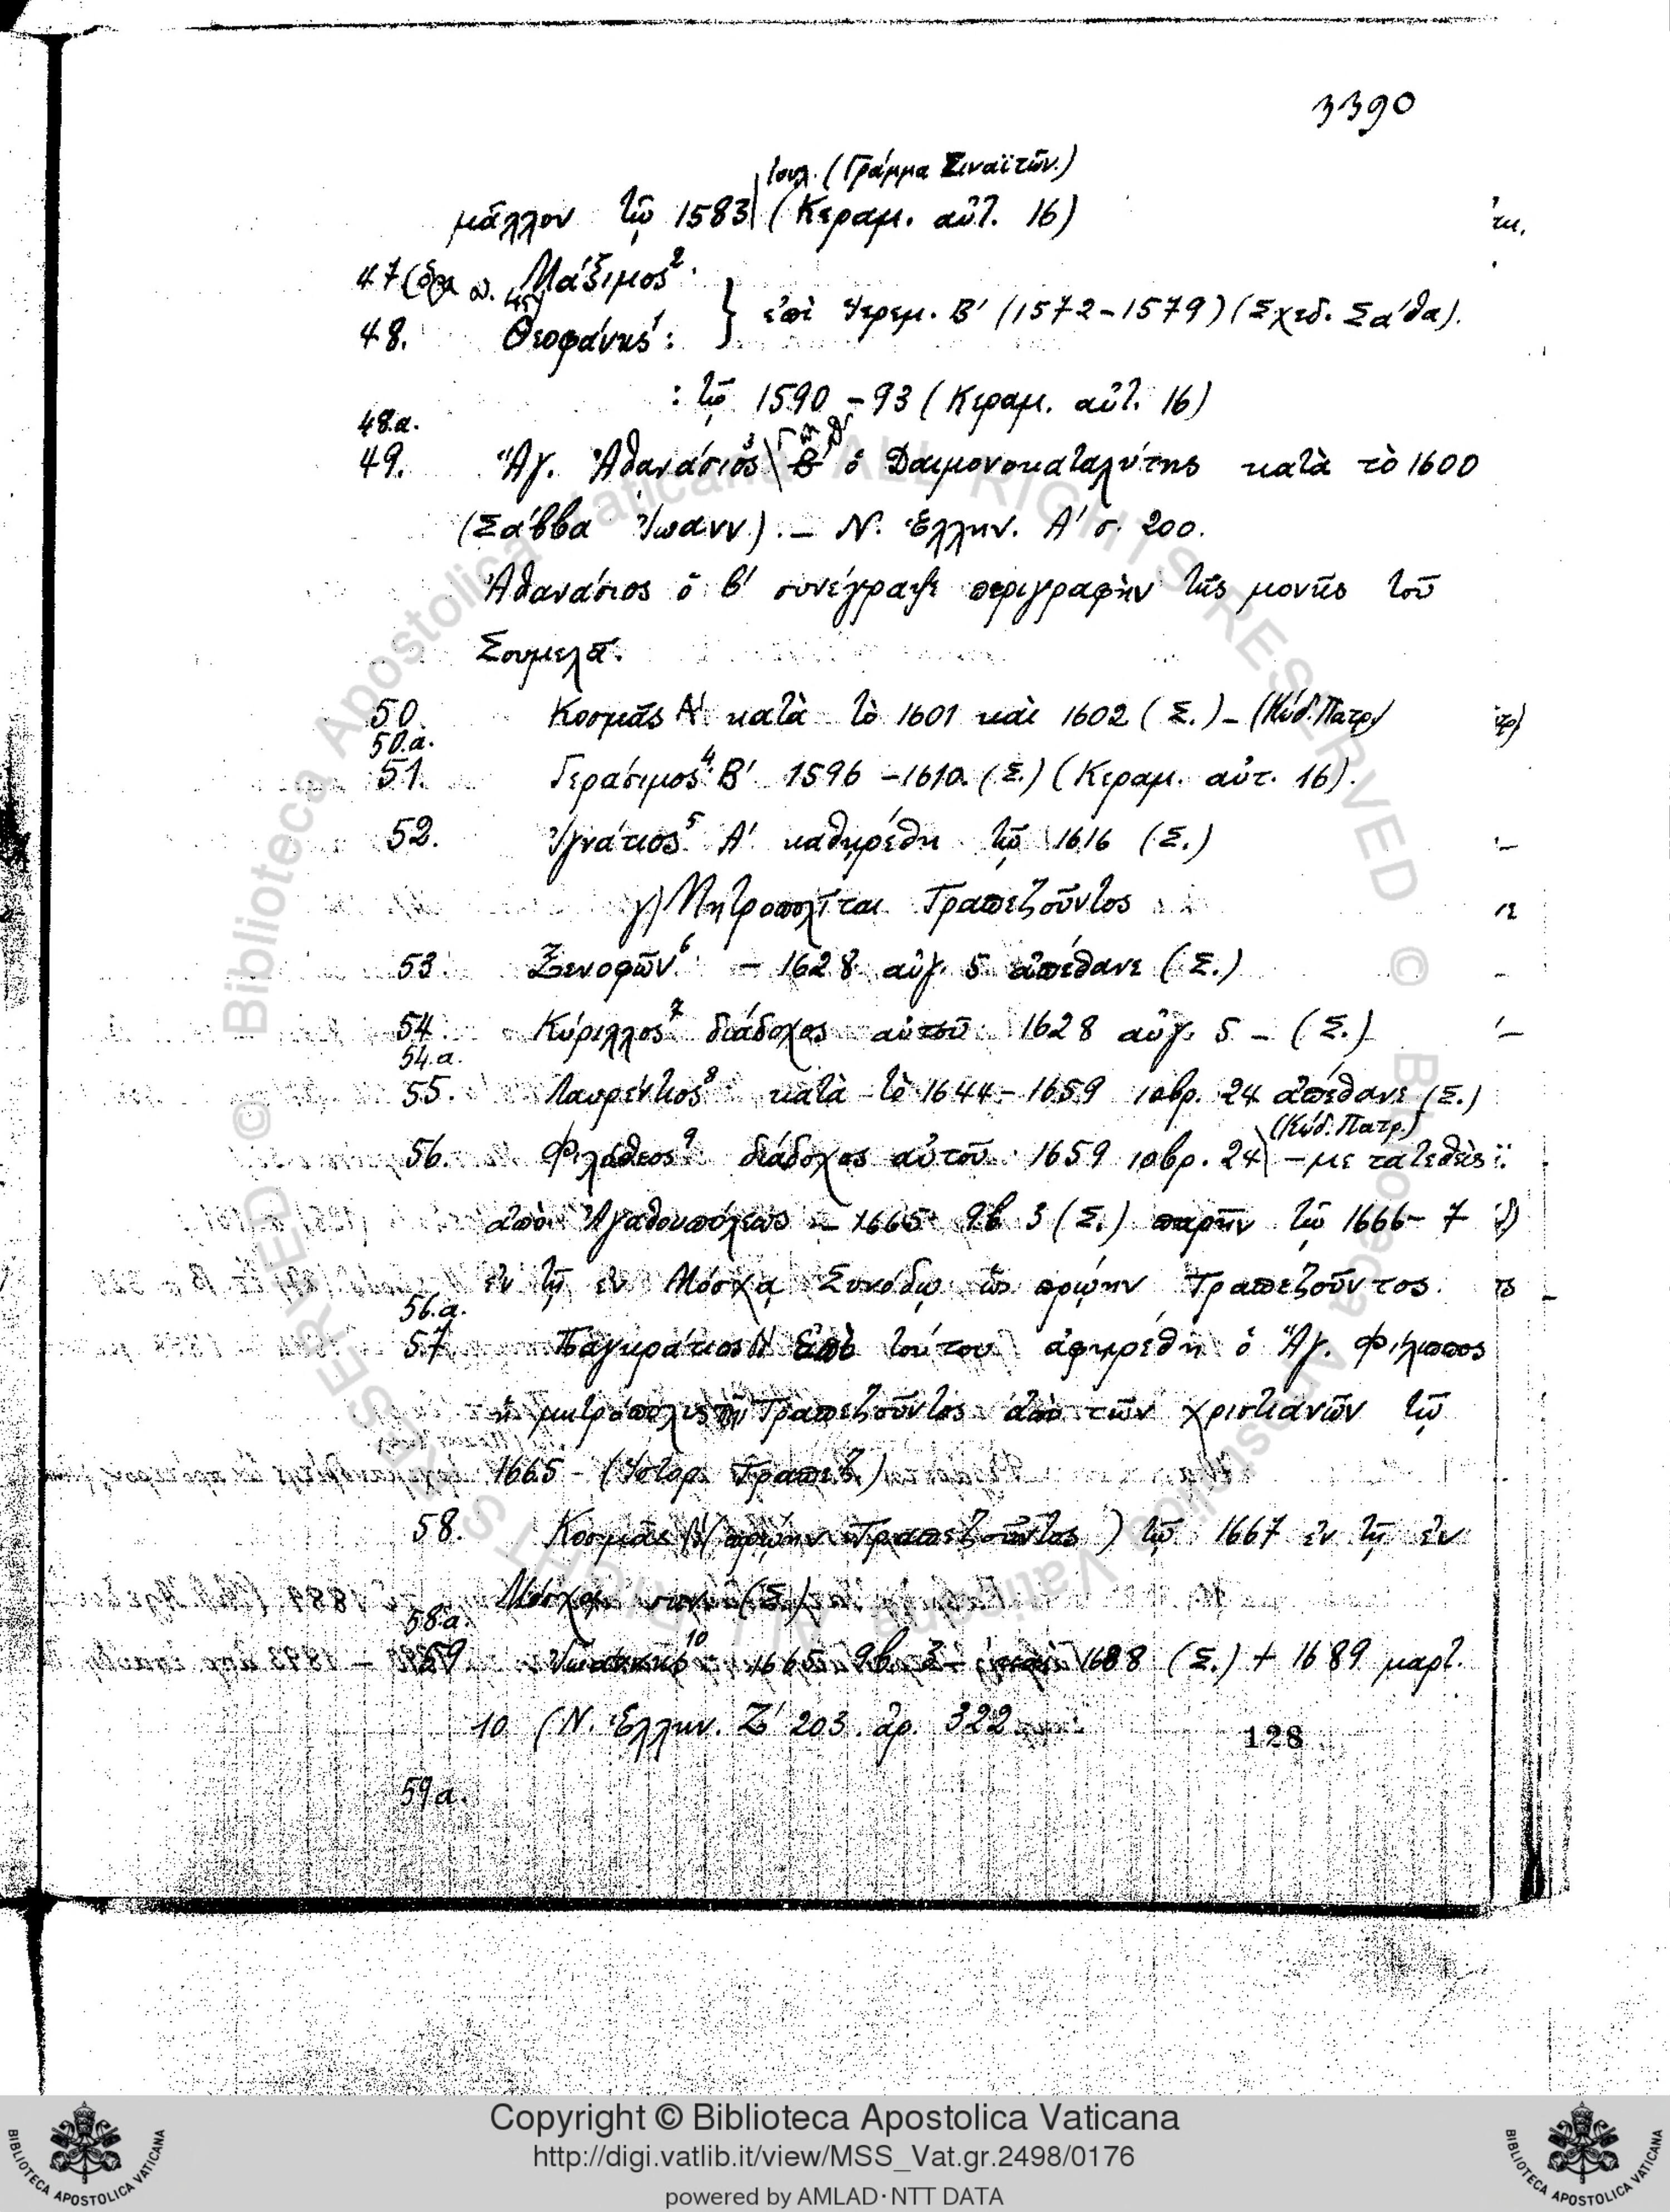 3390
Ἰουλ. (Γράμμα Σιναϊτῶν.)
μᾶλλον τῷ 1583 (Κεραμ. αὐτ. 16)
47 (ὅρα α. 45) Μάξιμος²
48. Θεοφάνης¹: } ἐπὶ Ἱερεμ. Β' (1572-1579) (Σχεδ. Σάθα).
: τῷ 1590-93 (Κεραμ. αὐτ. 16)
48.α.
49. Ἅγ. Ἀθανάσιος³ ὁ Δαιμονοκαταλύτης κατὰ τὸ 1600
(Σάββα Ἰωανν.). – Ν. Ἑλλην. Α' σ. 200.
Ἀθανάσιος ὁ β' συνέγραψε περιγραφὴν τῆς μονῆς τοῦ
Σουμελᾶ.
50. Κοσμᾶς Α' κατὰ τὸ 1601 καὶ 1602 (Σ.) – (Κώδ. Πατρ.)
50.α.
51. Γεράσιμος⁴ Β' 1596-1610. (Σ.) (Κεραμ. αὐτ. 16).
52. Ἰγνάτιος⁵ Α' καθῃρέθη τῷ 1616 (Σ.)
γ) Μητροπολῖται Τραπεζοῦντος
53. Ξενοφῶν⁶ – 1628 αὐγ. 5 ἀπέθανε (Σ.)
54. Κύριλλος⁷ διάδοχος αὐτοῦ 1628 αὐγ. 5 – (Σ.)
54.α.
55. Λαυρέντιος⁸ κατὰ τὸ 1644-1659 ιοβρ. 24 ἀπέθανε (Σ.)
(Κώδ. Πατρ.)
56. Φιλόθεος⁹ διάδοχος αὐτοῦ 1659 ιοβρ. 24 – μετατεθεὶς
ἀπὸ Ἀγαθουπόλεως – 1665 9β 3 (Σ.) παρῆν τῷ 1666-7
ἐν τῇ ἐν Μόσχᾳ Συνόδῳ ὡς πρώην Τραπεζοῦντος.
56.α.
57 Παγκράτιος Α' Ἐπὶ τούτου ἀφῃρέθη ὁ Ἅγ. Φίλιππος
ἡ μητρόπολις τῆς Τραπεζοῦντος ἀπὸ τῶν χριστιανῶν τῷ
1665 – (Ἱστορ. Τραπεζ.)
58. Κοσμᾶς (πρώην Τραπεζοῦντος) τῷ 1667 ἐν τῇ ἐν
Μόσχᾳ συνόδ. (Σ.)
58.α.
59 10 1665 9β 3 – 1688 (Σ.) + 1689 μαρτ.
10 (Ν. Ἑλλην. Ζ' 203. ἀρ. 322
128
59α.
© Biblioteca Apostolica Vaticana ALL RIGHTS RESERVED
Copyright © Biblioteca Apostolica Vaticana
http://digi.vatlib.it/view/MSS_Vat.gr.2498/0176
powered by AMLAD·NTT DATA
BIBLIOTECA APOSTOLICA VATICANA
BIBLIOTECA APOSTOLICA VATICANA